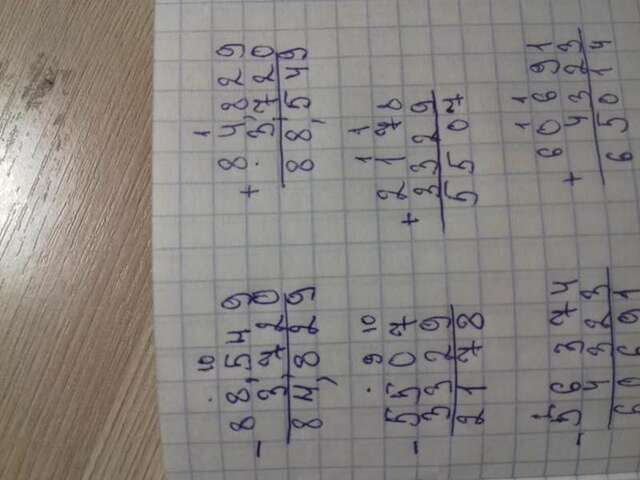 · 10 1
- 88,549 + 84,829
3,720 · 3,720
84,829 88,549
· 9 10 1 1
- 5507 + 2178
3329 3329
2178 5507
1 1 1
- 56 374 + 60691
4323 4323
60691 65014